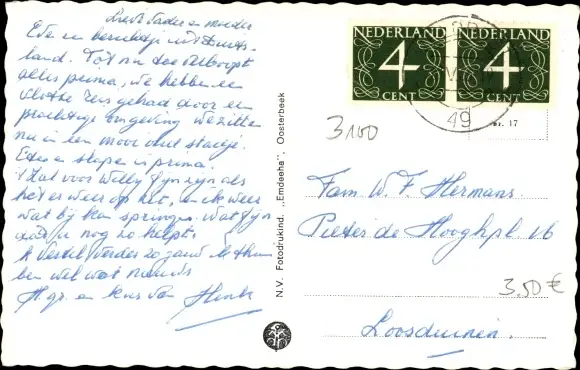 Lieve Vader en moeder
Even berichtje uit
land. Tot nu toe
alles prima, we hebben een
vlotte reis gehad door een
prachtige omgeving we zitten
nu in een mooi
Eten en slapen is prima.
't Zal voor Willy fijn zijn als
het er weer op zit, en ik weer
wat bij kan springen. wat fijn
dat u nog zo helpt.
'k Vertel verder zo gauw ik thuis
ben wel wat nieuws
H. gr. en kus van Henk
N.V. Fotodrukind. „Emdeeha", Oosterbeek
NEDERLAND
4
CENT
NEDERLAND
4
CENT
49
17
3100
Fam W. F. Hermans.
Pieter de Hooghpl. 16
3.50 €
Loosduinen.